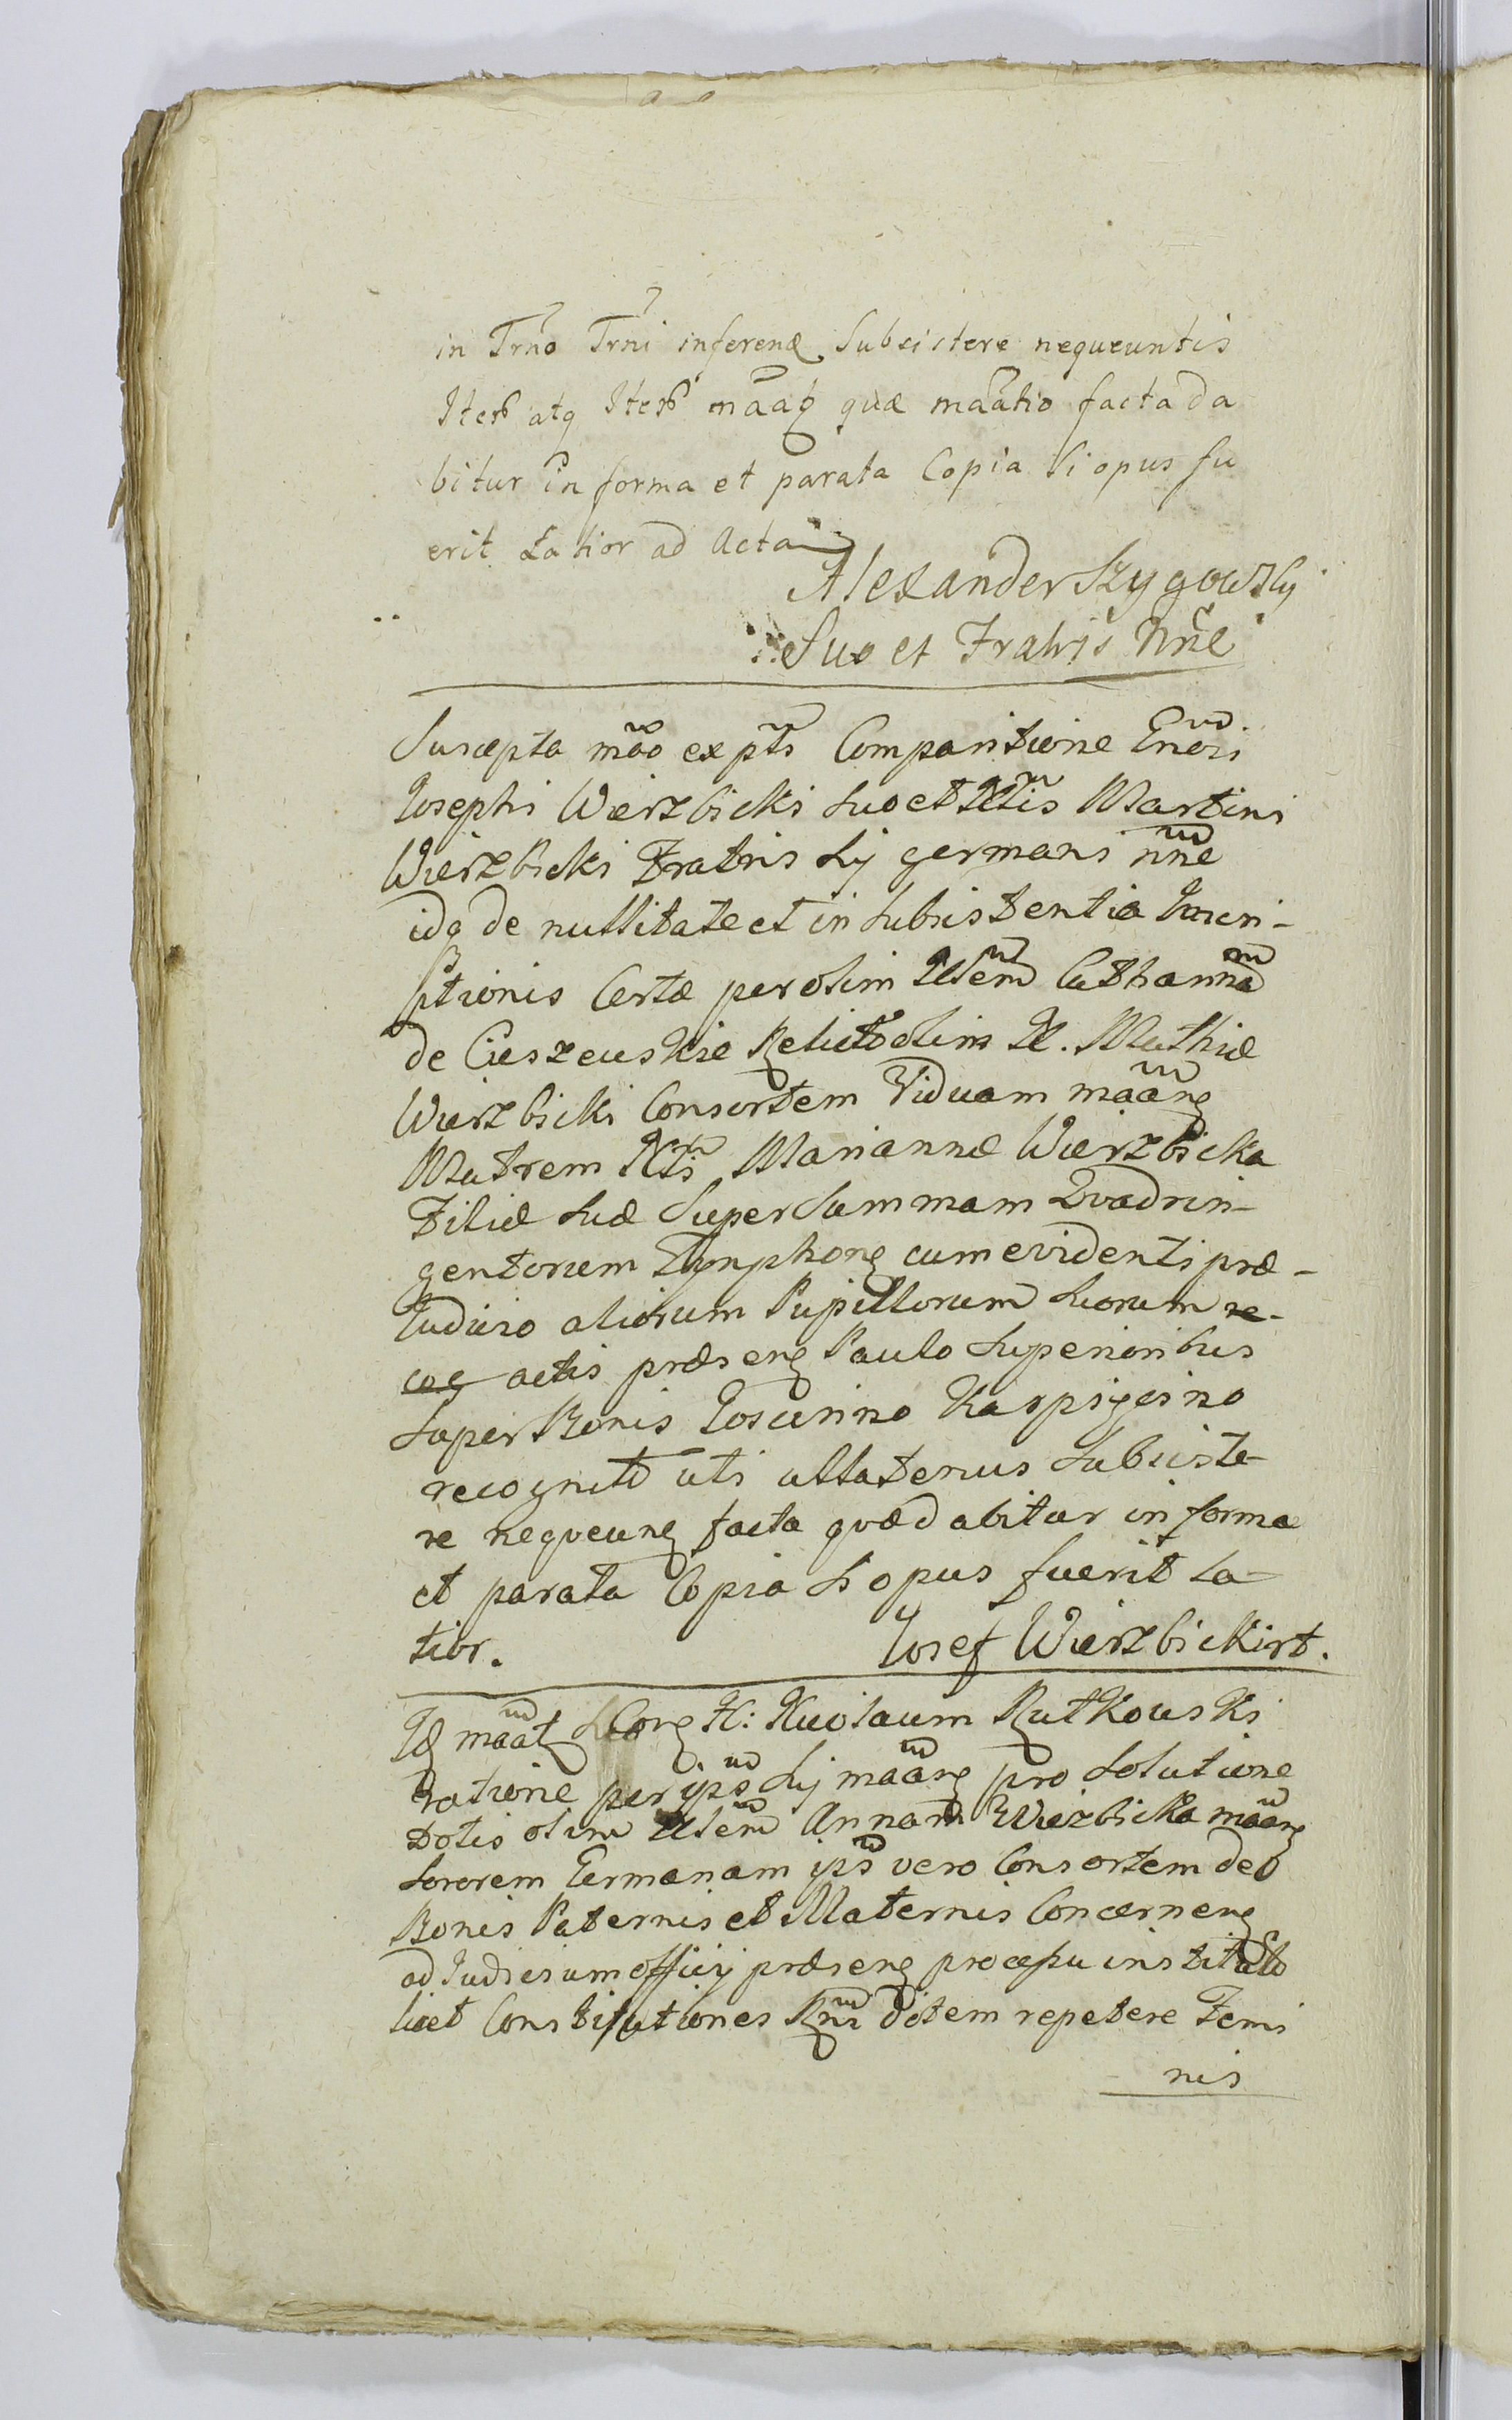 in Trño Trñi inferend Subsistere nequeuntis
Iter atq Iter mãaq quæ mãatio facta da
bitur in forma et parata Copia si opus fu
erit Latior ad Acta
Alexander Szygowsky
Suo et Fratris Nñe
Suscepta mão ex pts Comparitione Eñosi
Josephi Wierzbicki suo et Nlis Martini
Wierzbicki Fratris sy germani nñe
idq de nullitate et in subsistentia Inscri-
ptionis Certæ per olim Nlem Catharina
de Cieszewskie Relicto olim N. Mathiæ
Wierzbicki Consortem Viduam mãan
Matrem Nli Mariannæ Wierzbicka
Filiæ suæ Super Summam Quadrin-
gentorum Tynphon cum evidenti præ-
Judicio aliorum Pupillorum suorum re-
cog actis præsen Paulo superioribus
super Bonis Joscunino Kaspigeino
recognitæ uti ullatenus subsiste-
re nequeun facta quæ dabitur in forma
et parata Copia si opus fuerit La-
tior. Josef Wierzbicki rt.
Id mãat Con N: Nicolaum Rutkowski
ratione per ips sy mãan pro solutione
Dotis olim Nlem Annam Wiezbicka mãan
sororem Germanam ips vero Consortem de
Bonis Paternis et Maternis Concernen
ad Judicium officij præsen processu instituto
licet Constitutiones Rñi dotem repetere Femi
nis